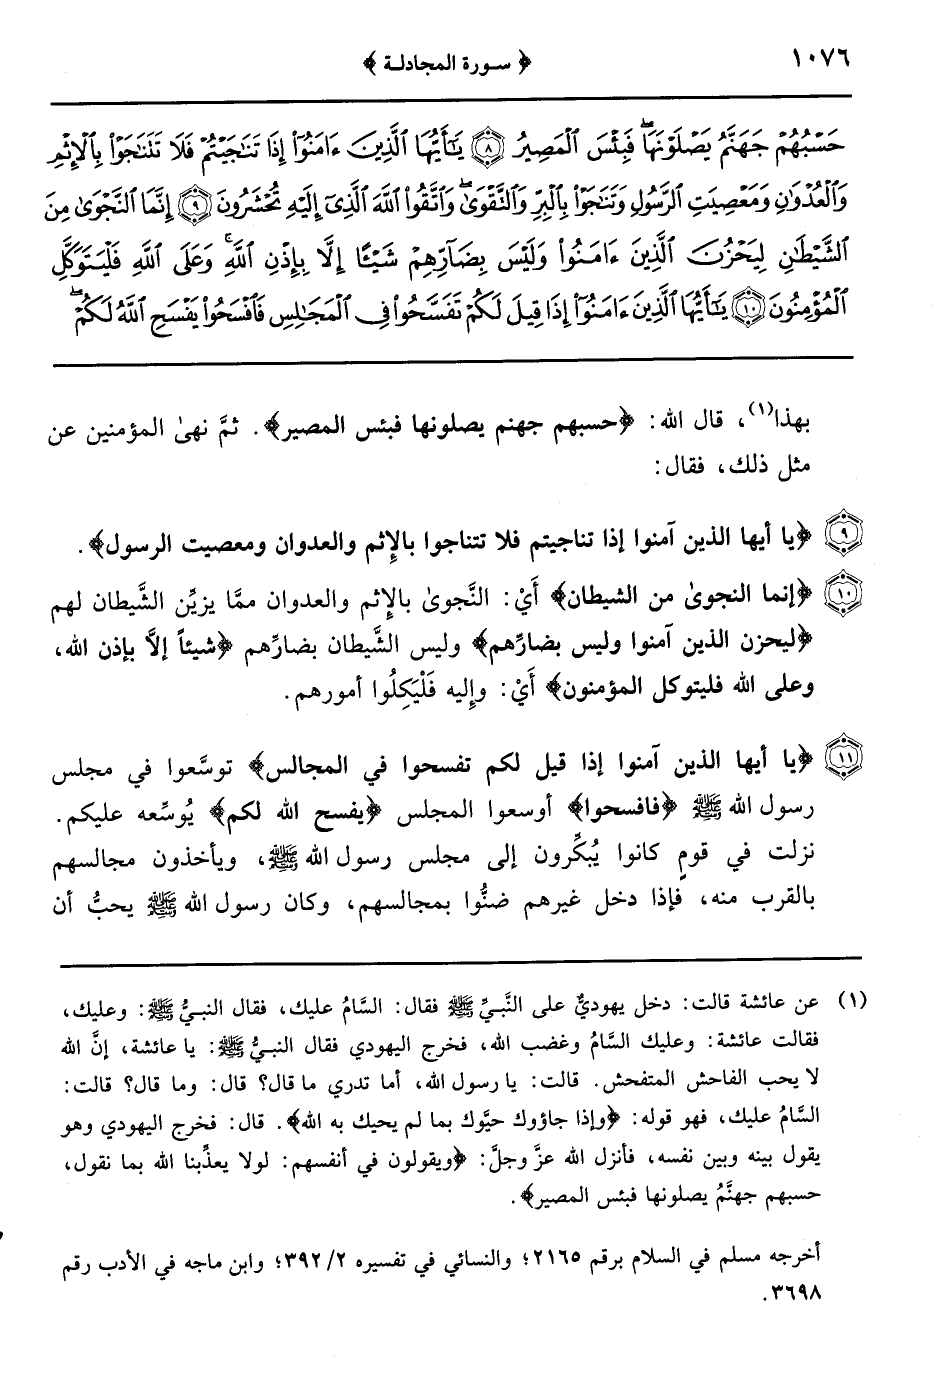 ١٠٧٦
﴿ سورة المجادلة ﴾
حَسْبُهُمْ جَهَنَّمُ يَصْلَوْنَهَا ۖ فَبِئْسَ ٱلْمَصِيرُ ٨ يَـٰٓأَيُّهَا ٱلَّذِينَ ءَامَنُوٓا۟ إِذَا تَنَـٰجَيْتُمْ فَلَا تَتَنَـٰجَوْا۟ بِٱلْإِثْمِ
وَٱلْعُدْوَٰنِ وَمَعْصِيَتِ ٱلرَّسُولِ وَتَنَـٰجَوْا۟ بِٱلْبِرِّ وَٱلتَّقْوَىٰ ۖ وَٱتَّقُوا۟ ٱللَّهَ ٱلَّذِىٓ إِلَيْهِ تُحْشَرُونَ ٩ إِنَّمَا ٱلنَّجْوَىٰ مِنَ
ٱلشَّيْطَـٰنِ لِيَحْزُنَ ٱلَّذِينَ ءَامَنُوا۟ وَلَيْسَ بِضَآرِّهِمْ شَيْـًٔا إِلَّا بِإِذْنِ ٱللَّهِ ۚ وَعَلَى ٱللَّهِ فَلْيَتَوَكَّلِ
ٱلْمُؤْمِنُونَ ١٠ يَـٰٓأَيُّهَا ٱلَّذِينَ ءَامَنُوٓا۟ إِذَا قِيلَ لَكُمْ تَفَسَّحُوا۟ فِى ٱلْمَجَـٰلِسِ فَٱفْسَحُوا۟ يَفْسَحِ ٱللَّهُ لَكُمْ ۖ
بهذا(١)، قال الله: ﴿حسبهم جهنم يصلونها فبئس المصير﴾. ثمَّ نهىٰ المؤمنين عن
مثل ذلك، فقال:
٩ ﴿يا أيها الذين آمنوا إذا تناجيتم فلا تتناجوا بالإِثم والعدوان ومعصيت الرسول﴾.
١٠ ﴿إنما النجوىٰ من الشيطان﴾ أَيْ: النَّجوىٰ بالإِثم والعدوان ممَّا يزيِّن الشَّيطان لهم
﴿ليحزن الذين آمنوا وليس بضارِّهم﴾ وليس الشَّيطان بضارِّهم ﴿شيئاً إلاَّ بإذن الله،
وعلى الله فليتوكل المؤمنون﴾ أَيْ: وإليه فَلْيَكِلُوا أمورهم.
١١ ﴿يا أيها الذين آمنوا إذا قيل لكم تفسحوا في المجالس﴾ توسَّعوا في مجلس
رسول الله ﷺ ﴿فافسحوا﴾ أوسعوا المجلس ﴿يفسح الله لكم﴾ يُوسِّعه عليكم.
نزلت في قومٍ كانوا يُبكِّرون إلى مجلس رسول الله ﷺ، ويأخذون مجالسهم
بالقرب منه، فإذا دخل غيرهم ضنُّوا بمجالسهم، وكان رسول الله ﷺ يحبُّ أن
(١) عن عائشة قالت: دخل يهوديٌّ على النَّبيِّ ﷺ فقال: السَّامُ عليك، فقال النبيُّ ﷺ: وعليك،
فقالت عائشة: وعليك السَّامُ وغضب الله، فخرج اليهودي فقال النبيُّ ﷺ: يا عائشة، إنَّ الله
لا يحب الفاحش المتفحش. قالت: يا رسول الله، أما تدري ما قال؟ قال: وما قال؟ قالت:
السَّامُ عليك، فهو قوله: ﴿وإذا جاؤوك حيَّوك بما لم يحيك به الله﴾. قال: فخرج اليهودي وهو
يقول بينه وبين نفسه، فأنزل الله عزَّ وجلَّ: ﴿ويقولون في أنفسهم: لولا يعذِّبنا الله بما نقول،
حسبهم جهنَّمُ يصلونها فبئس المصير﴾.
أخرجه مسلم في السلام برقم ٢١٦٥؛ والنسائي في تفسيره ٣٩٢/٢؛ وابن ماجه في الأدب رقم
٣٦٩٨.